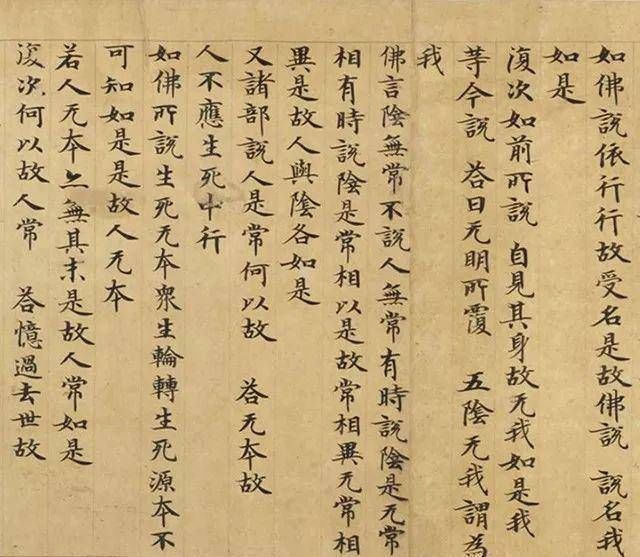 如佛說依行行故受名是故佛說 說名我
如是
復次如前所說 自見其身故无我如是我
等今說 答曰无明所覆 五陰无我謂為
我
佛言陰無常不說人無常有時說陰是无常
相有時說陰是常相以是故常相異无常相
異是故人與陰各如是
又諸部說人是常何以故 答无本故
人不應生死中行
如佛所說生死无本衆生輪轉生死源本不
可知如是是故人无本
若人无本亦無其末是故人常如是
復次何以故人常 答憶過去世故